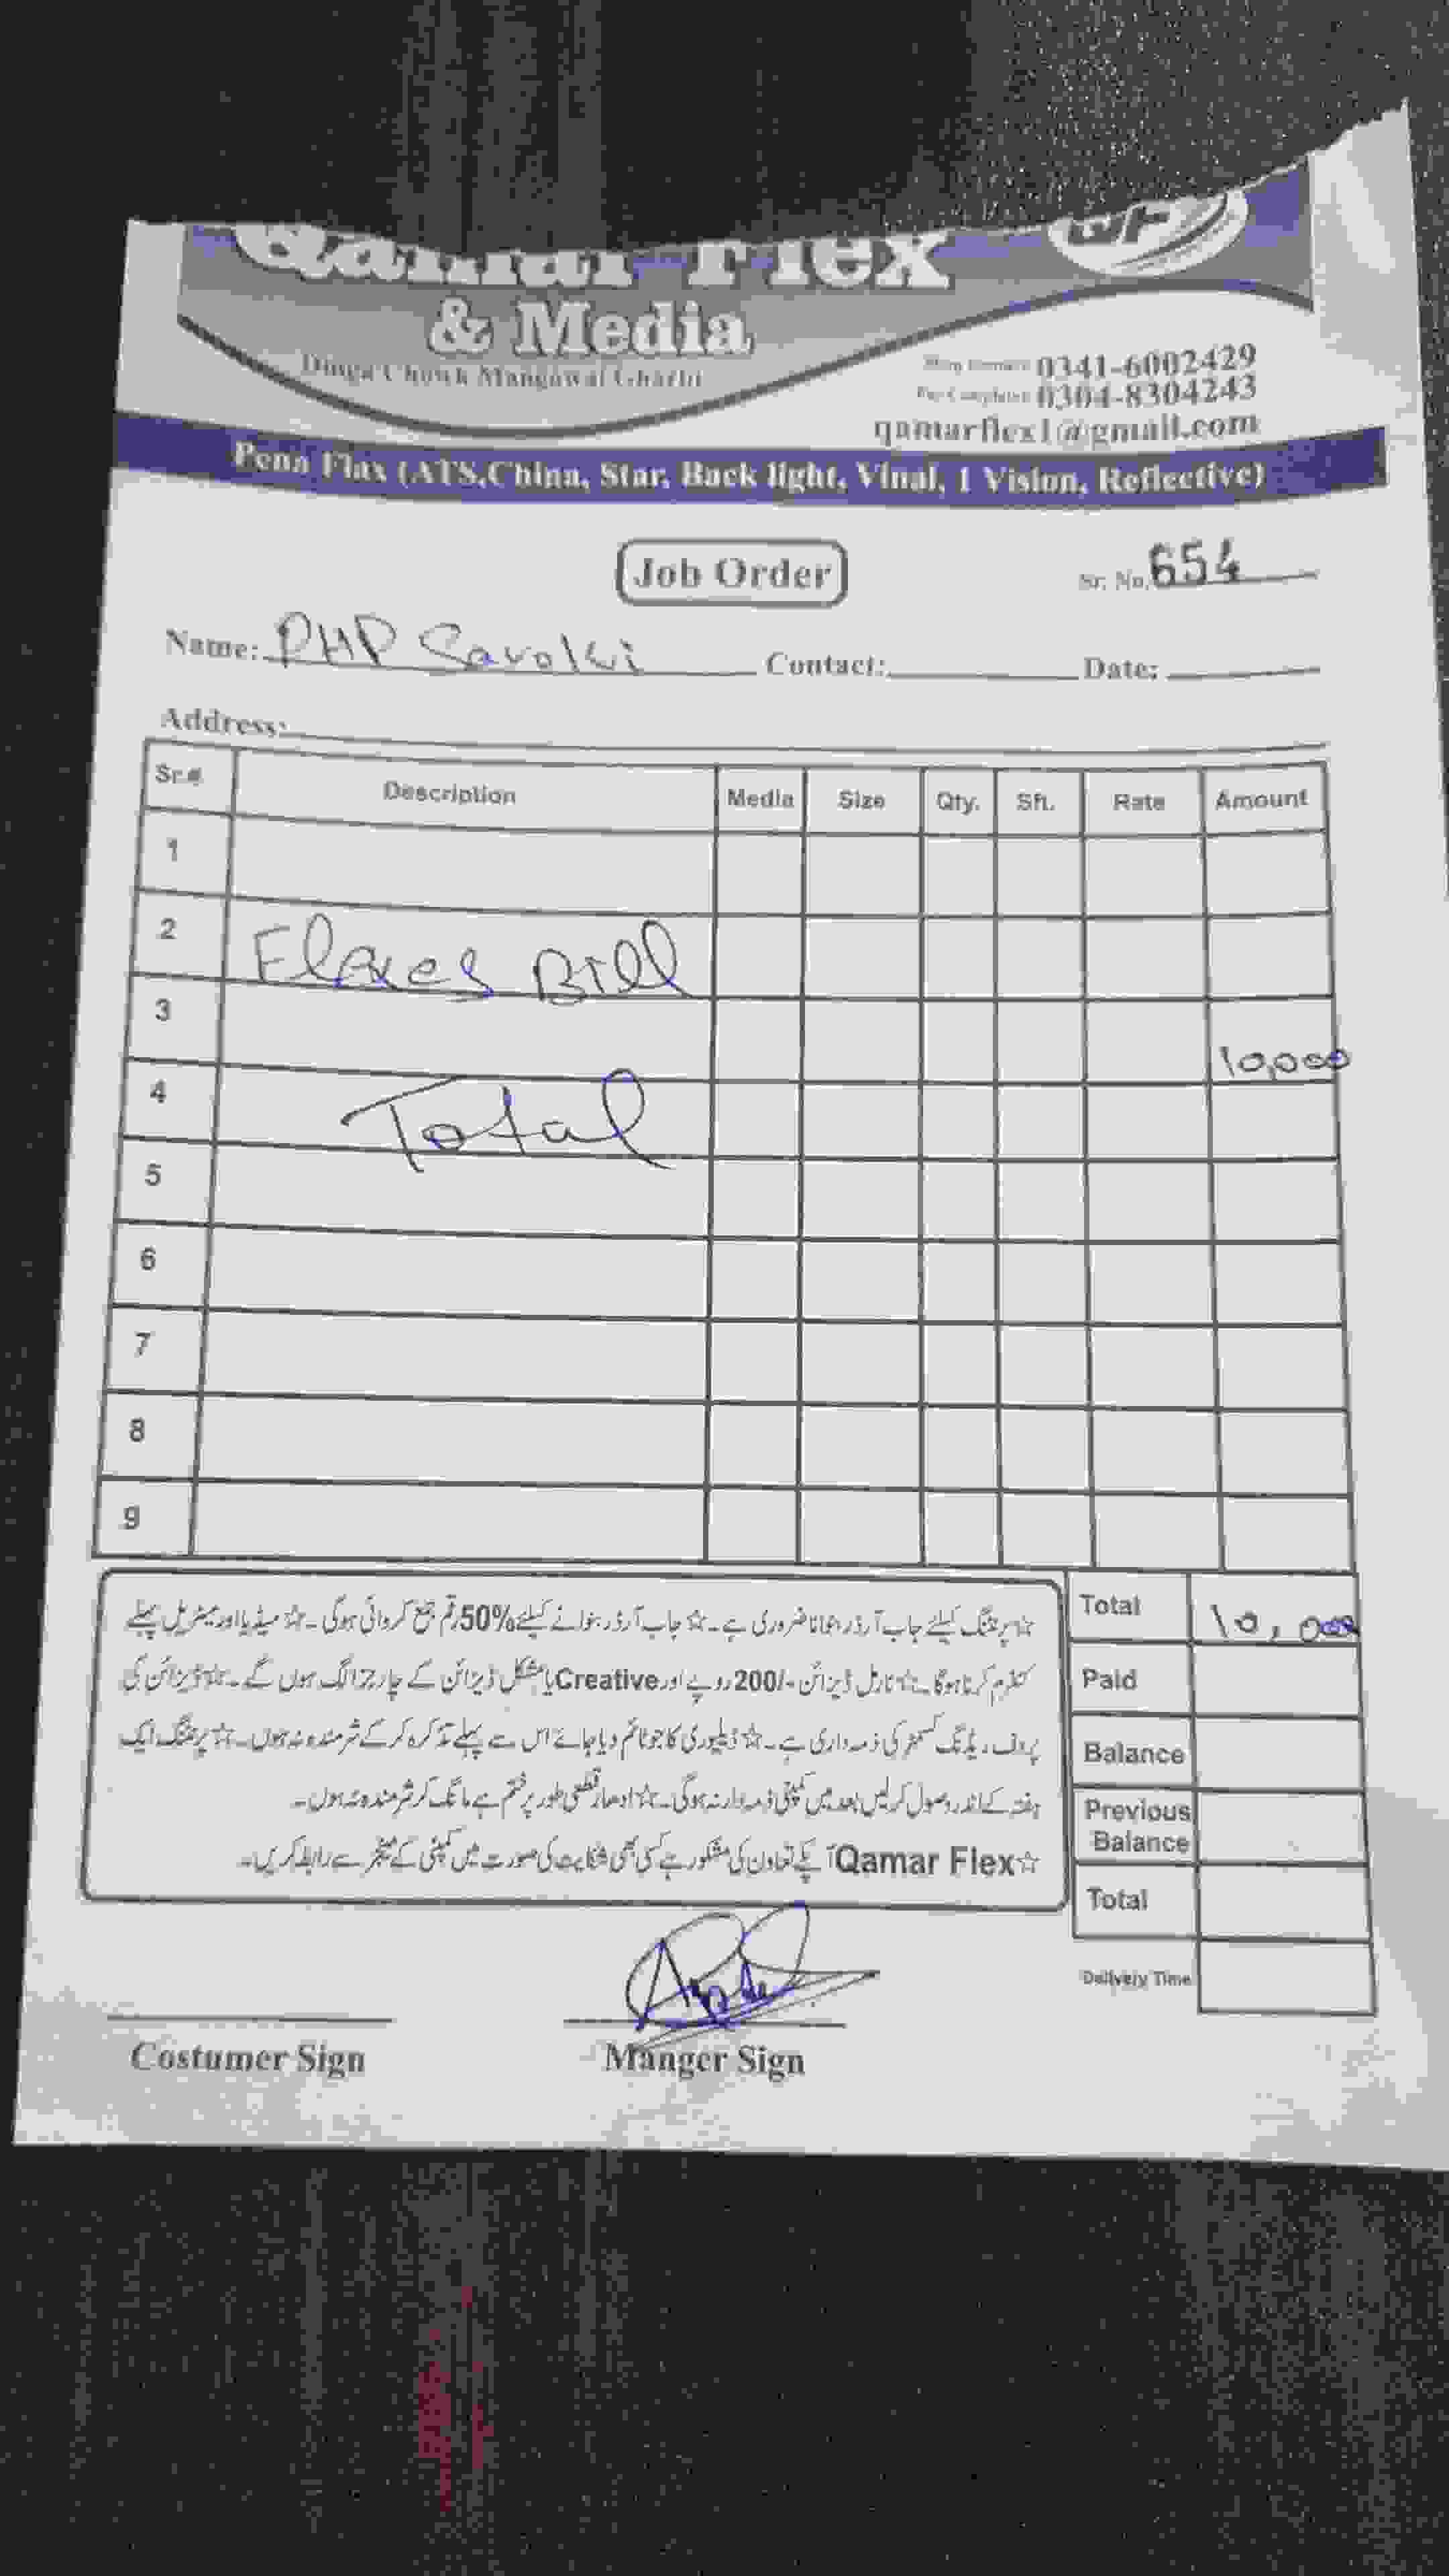 Qamar Flex
& Media
Dinga Chowk Mangowal Gharbi
0341-6002429
For Complaint: 0304-8304243
qamarflex1@gmail.com
Pena Flax (ATS,China, Star, Back light, Vinal, 1 Vision, Reflective)
Job Order
Sr. No. 654
Name: PHP Contact: Date:
Address:
Sr.# Description Media Size Qty. Sft. Rate Amount
1
2 Flaxes Bill
3 10,000
4 Total
5
6
7
8
9
☆پرنٹنگ کیلئے جاب آرڈر بنوانا ضروری ہے۔☆ جاب آرڈر بنوانے کیلئے %50 رقم جمع کروانی ہوگی۔☆ میڈیا اور میٹریل پہلے
کنفرم کرنا ہوگا۔☆ نارمل ڈیزائن -/200 روپے اور Creative یا مشکل ڈیزائن کے چارجز الگ ہوں گے۔☆ ڈیزائن کی
پروف ریڈنگ کسٹمر کی ذمہ داری ہے۔☆ ڈیلیوری کا جو ٹائم دیا جائے اس سے پہلے تذکرہ کر کے شرمندہ نہ ہوں۔☆ پرنٹنگ ایک
ہفتہ کے اندر وصول کر لیں بعد میں کمپنی ذمہ دار نہ ہوگی۔☆ ادھار قطعی طور پر ختم ہے مانگ کر شرمندہ نہ ہوں۔
☆Qamar Flex آپکے تعاون کی مشکور ہے کسی بھی شکایت کی صورت میں کمپنی کے مینیجر سے رابطہ کریں۔
Total 10,000
Paid
Balance
Previous Balance
Total
Delivery Time
Costumer Sign Manger Sign